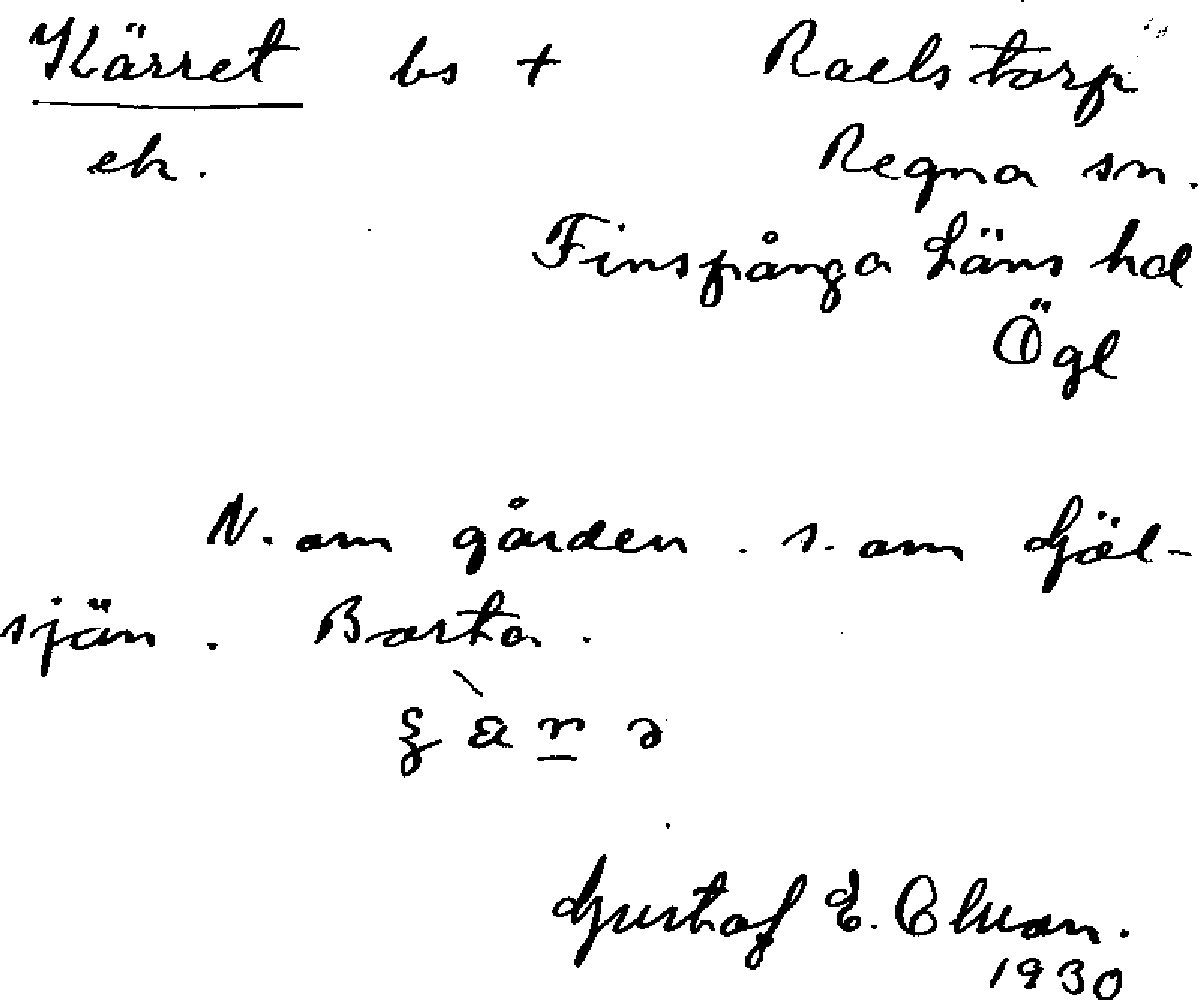 Kärret bs + Raelstorp
ek. Regna sn.
Finspånga Läns hd
Ögl
N. om gården. s. om Gjöl-
sjön. Borta.
Gustaf E. Olsson.
1930